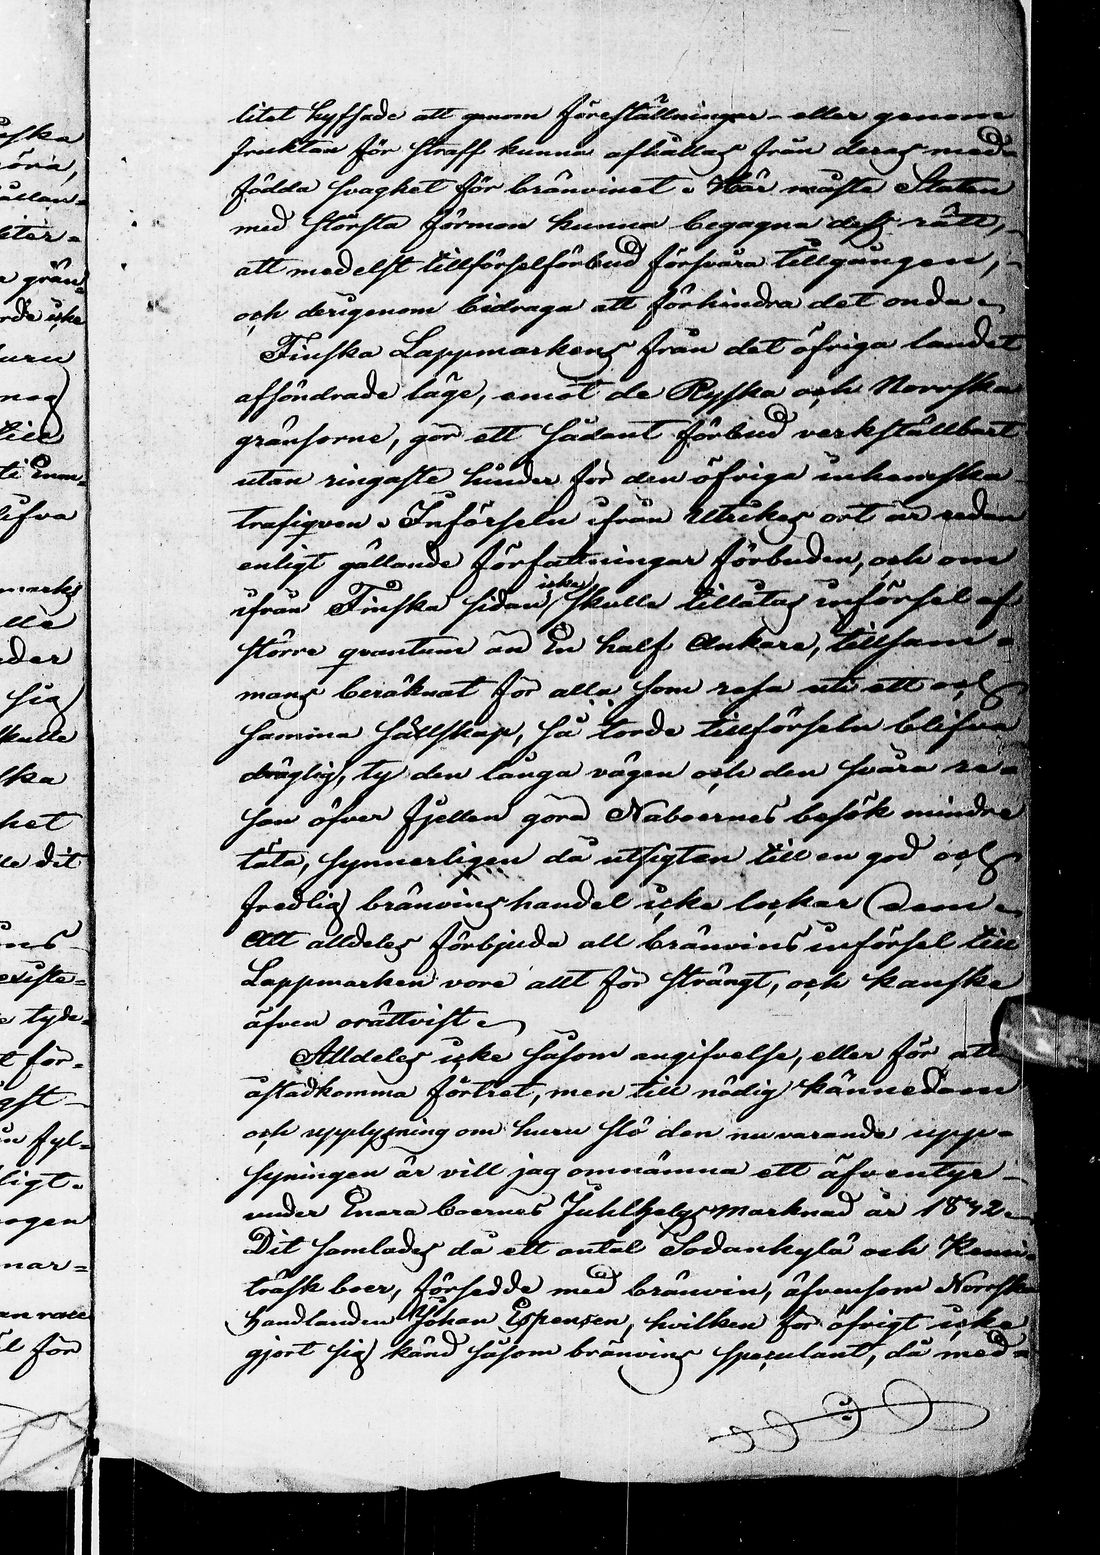 litet hyfsade att genom föreställningar eller genom
fruktan för straff kunna afhållas från deras med-
födda svaghet för bränvinet. Här måste Staten
med största förmon kunna begagna dess rätt,
att medelst tillförselförbud försvåra tillgången,
och derigenom bidraga att förhindra det onda.
Finska Lappmarkens från det öfriga landet
afsöndrade läge, emot de Ryska och Norrska
gränsorne, gör ett sådant förbud verkställbart
utan ringaste hinder för den öfriga inhemska
trafiqven. Införseln ifrån Utrikes ort är redan
enligt gällande författningar förbuden, och om
ifrån Finska sidan icke skulle tillåtas införsel af
större qvantum än En half Ankare, tillsam-
mans beräknat för alla som resa uti ett och
samma sällskap, så torde tillförseln blifva
dräglig, ty den långa vägen och den svåra re-
san öfver fjellen göra Naboernes besök mindre
täta, synnerligen då utsigten till en god och
fredlig bränvins handel icke lockar dem.
Att alldeles förbjuda all bränvins införsel till
Lappmarken vore allt för strängt, och kanske
äfven orättvist.
Alldeles icke såsom angifvelse, eller för att
åstadkomma förtret, men till nödig kännedom
och upplysning om huru slö den nuvarande upp-
syningen är vill jag omnämna ett äfventyr
under Enare boernes Juhlhelgsmarknad år 1842.
Dit samlades då ett antal Sodankylä och Kemi-
träsk boer, försedde med bränvin, äfvensom Norrske
Handlanden Johan Espensen, hvilken för öfrigt icke
gjort sig känd såsom bränvins speculant, då med-